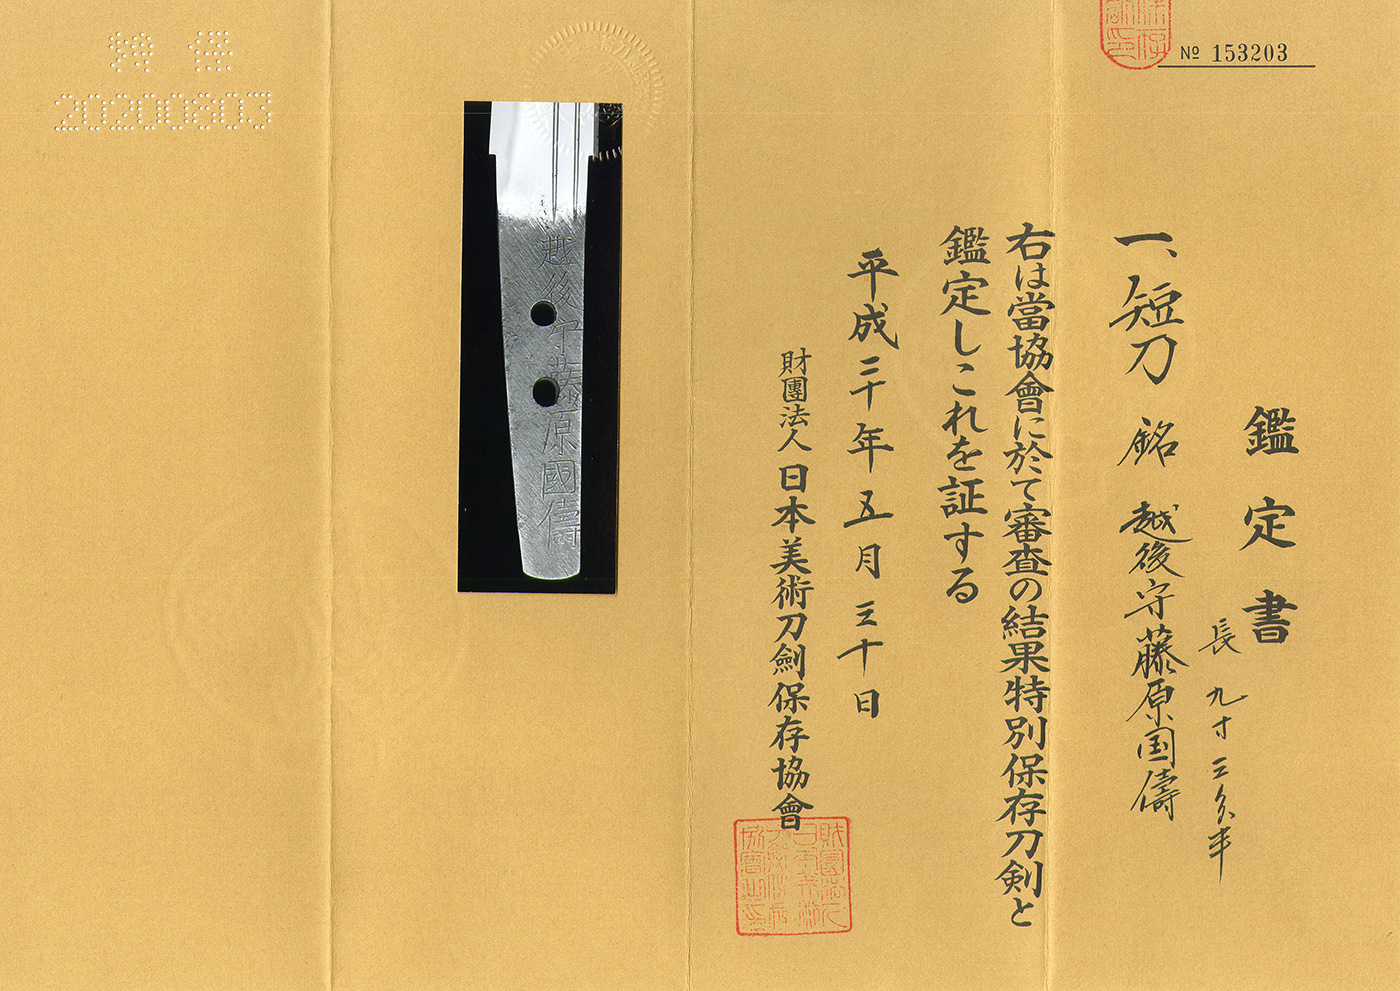 № 153203
鑑定書
一、短刀 銘 越後守藤原国儔
長 九寸三分半
右は當協會に於て審査の結果特別保存刀剣と
鑑定しこれを証する
平成二十年五月三十日
財團法人日本美術刀劍保存協會
越後守藤原國儔
20200803